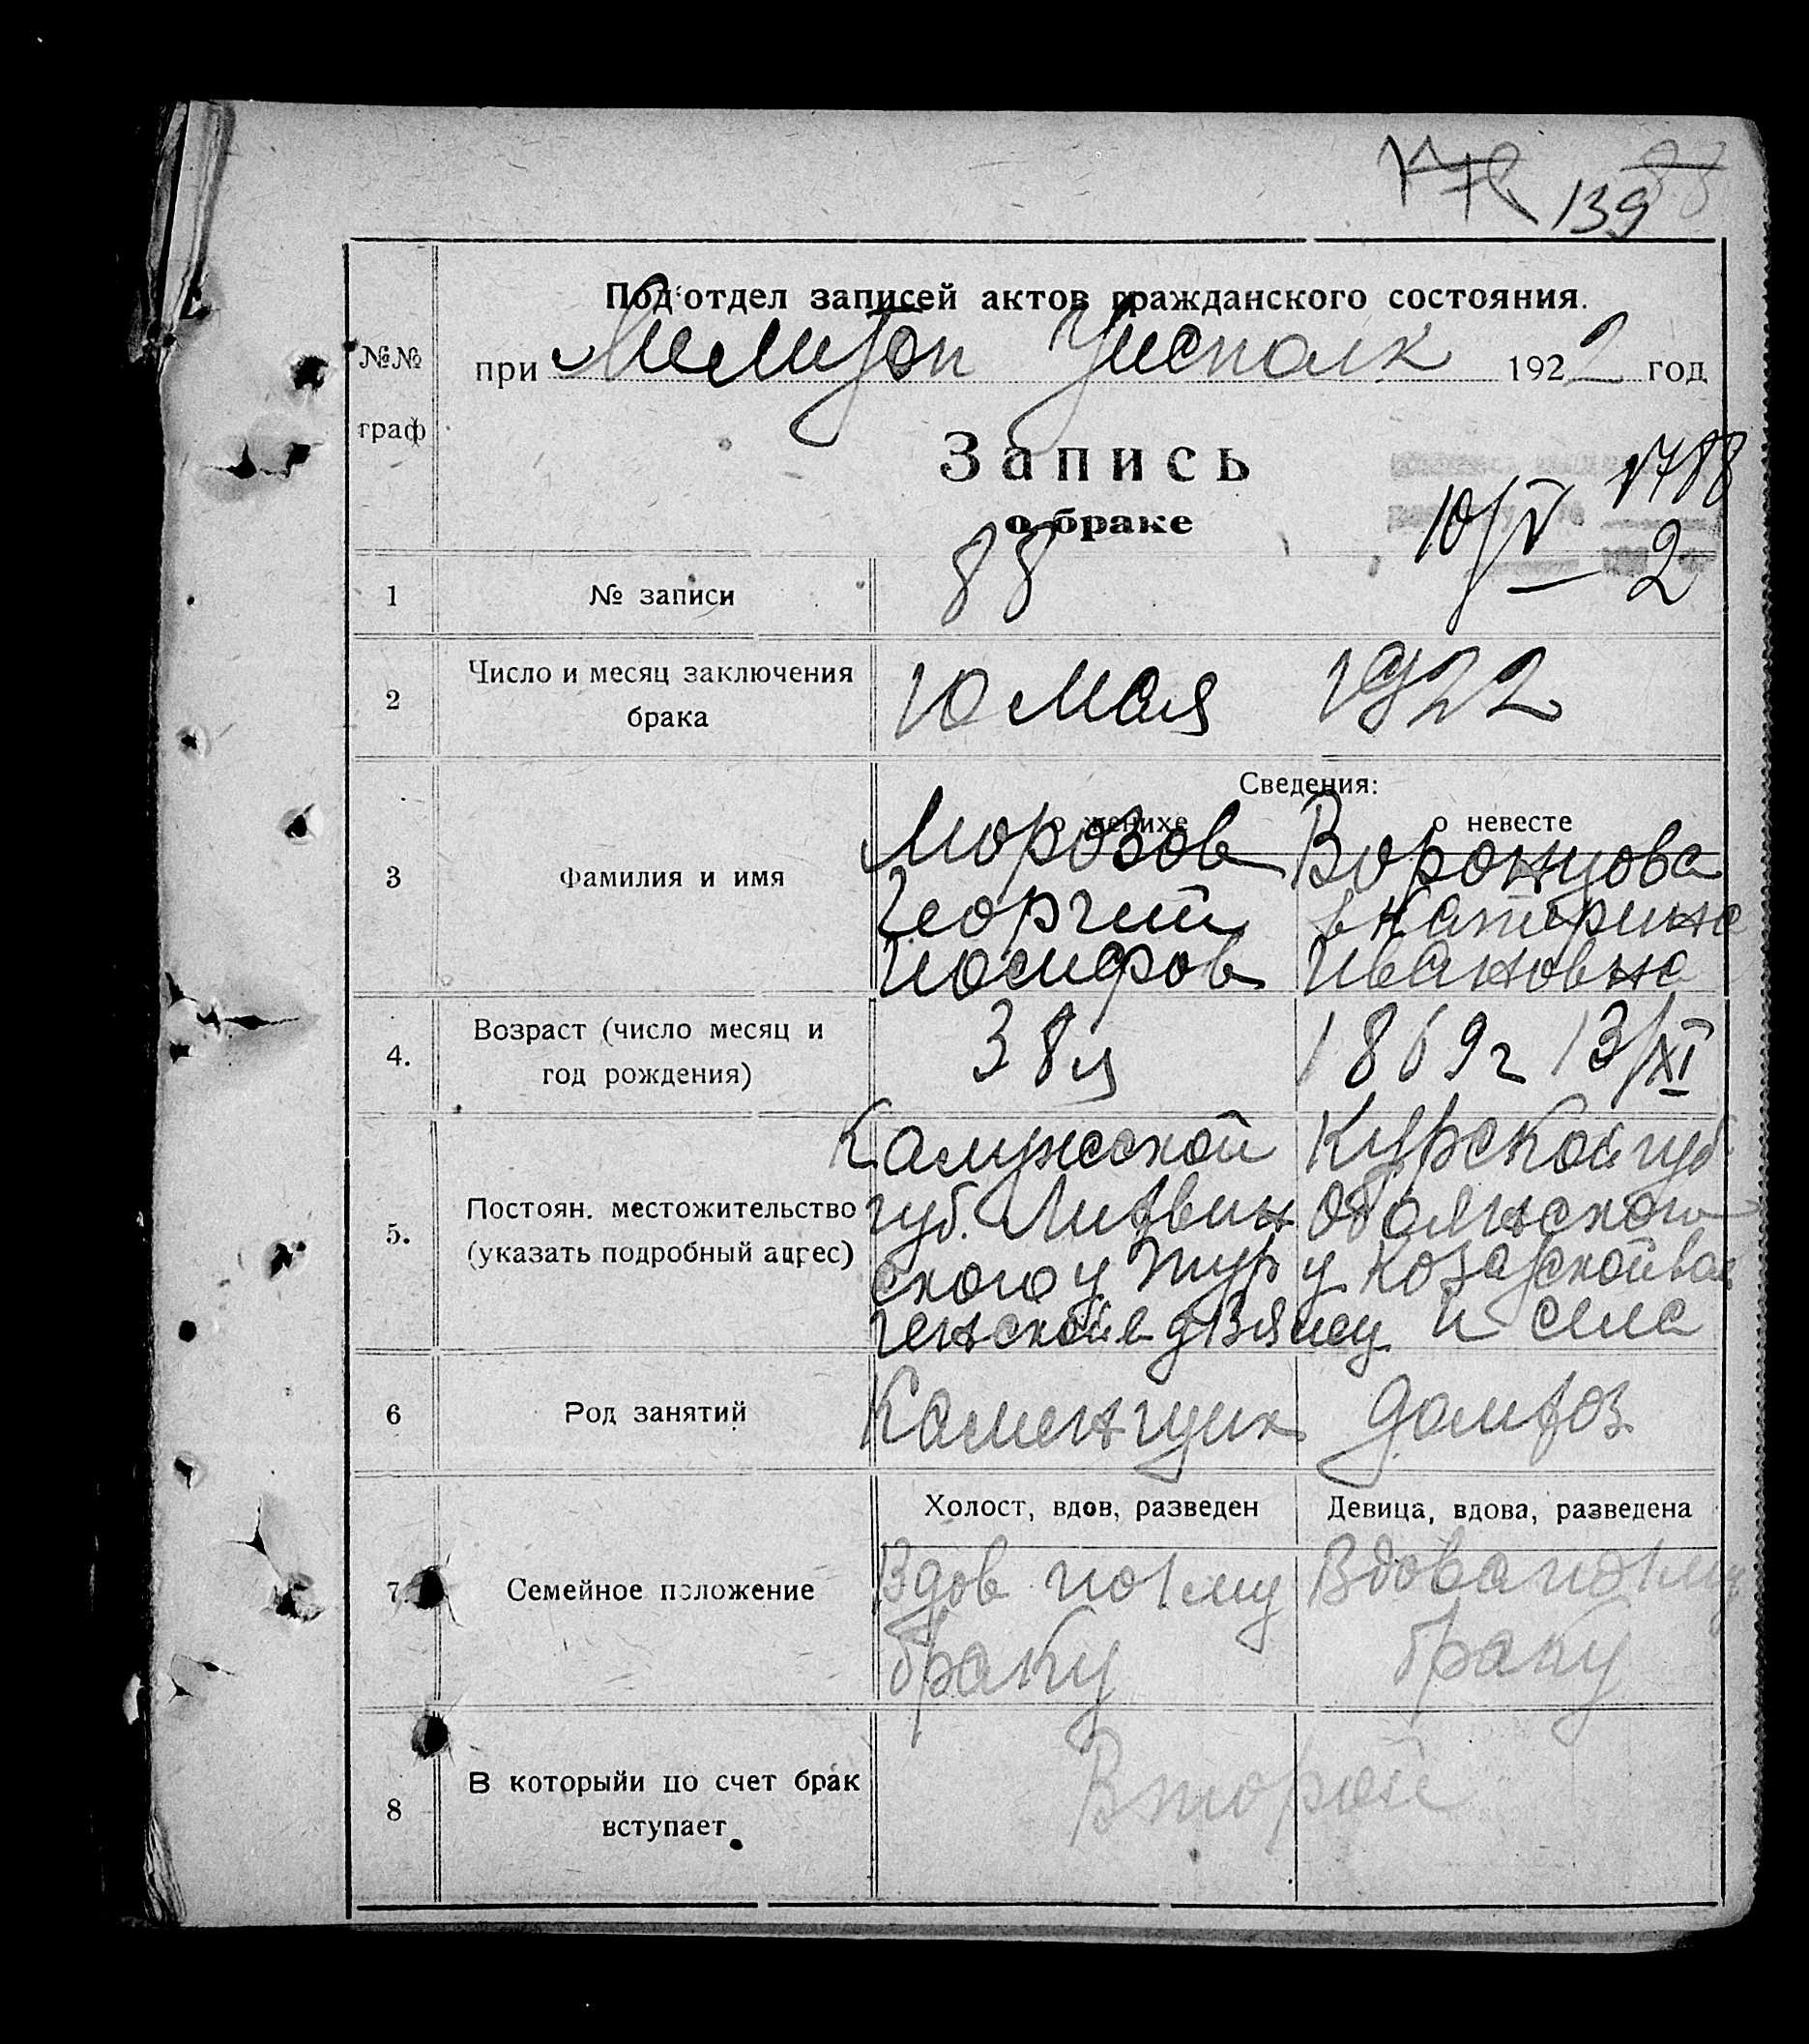 139
Под'отдел записей актов гражданского состояния.
при Мелитоп Уисполк 1922 год
№№ граф
Запись
о браке
1788
10/V 2
1 № записи 88
2 Число и месяц заключения брака 10 мая 1922
Сведения:
о женихе о невесте
3 Фамилия и имя
Морозов Воронцова
Георгий Екатерина
Иосифов Ивановна
4. Возраст (число месяц и год рождения) 38 л 1869 г 13/XI
5. Постоян. местожительство (указать подробный адрес)
Калужской Курской губ
губ. Литвин Обоянского
ского у у
и села
6 Род занятий Каменщик домхоз
Холост, вдов, разведен Девица, вдова, разведена
7 Семейное положение
Вдов по 1му Вдова по 1му
браку браку
8 В которыйи по счет брак вступает Второй